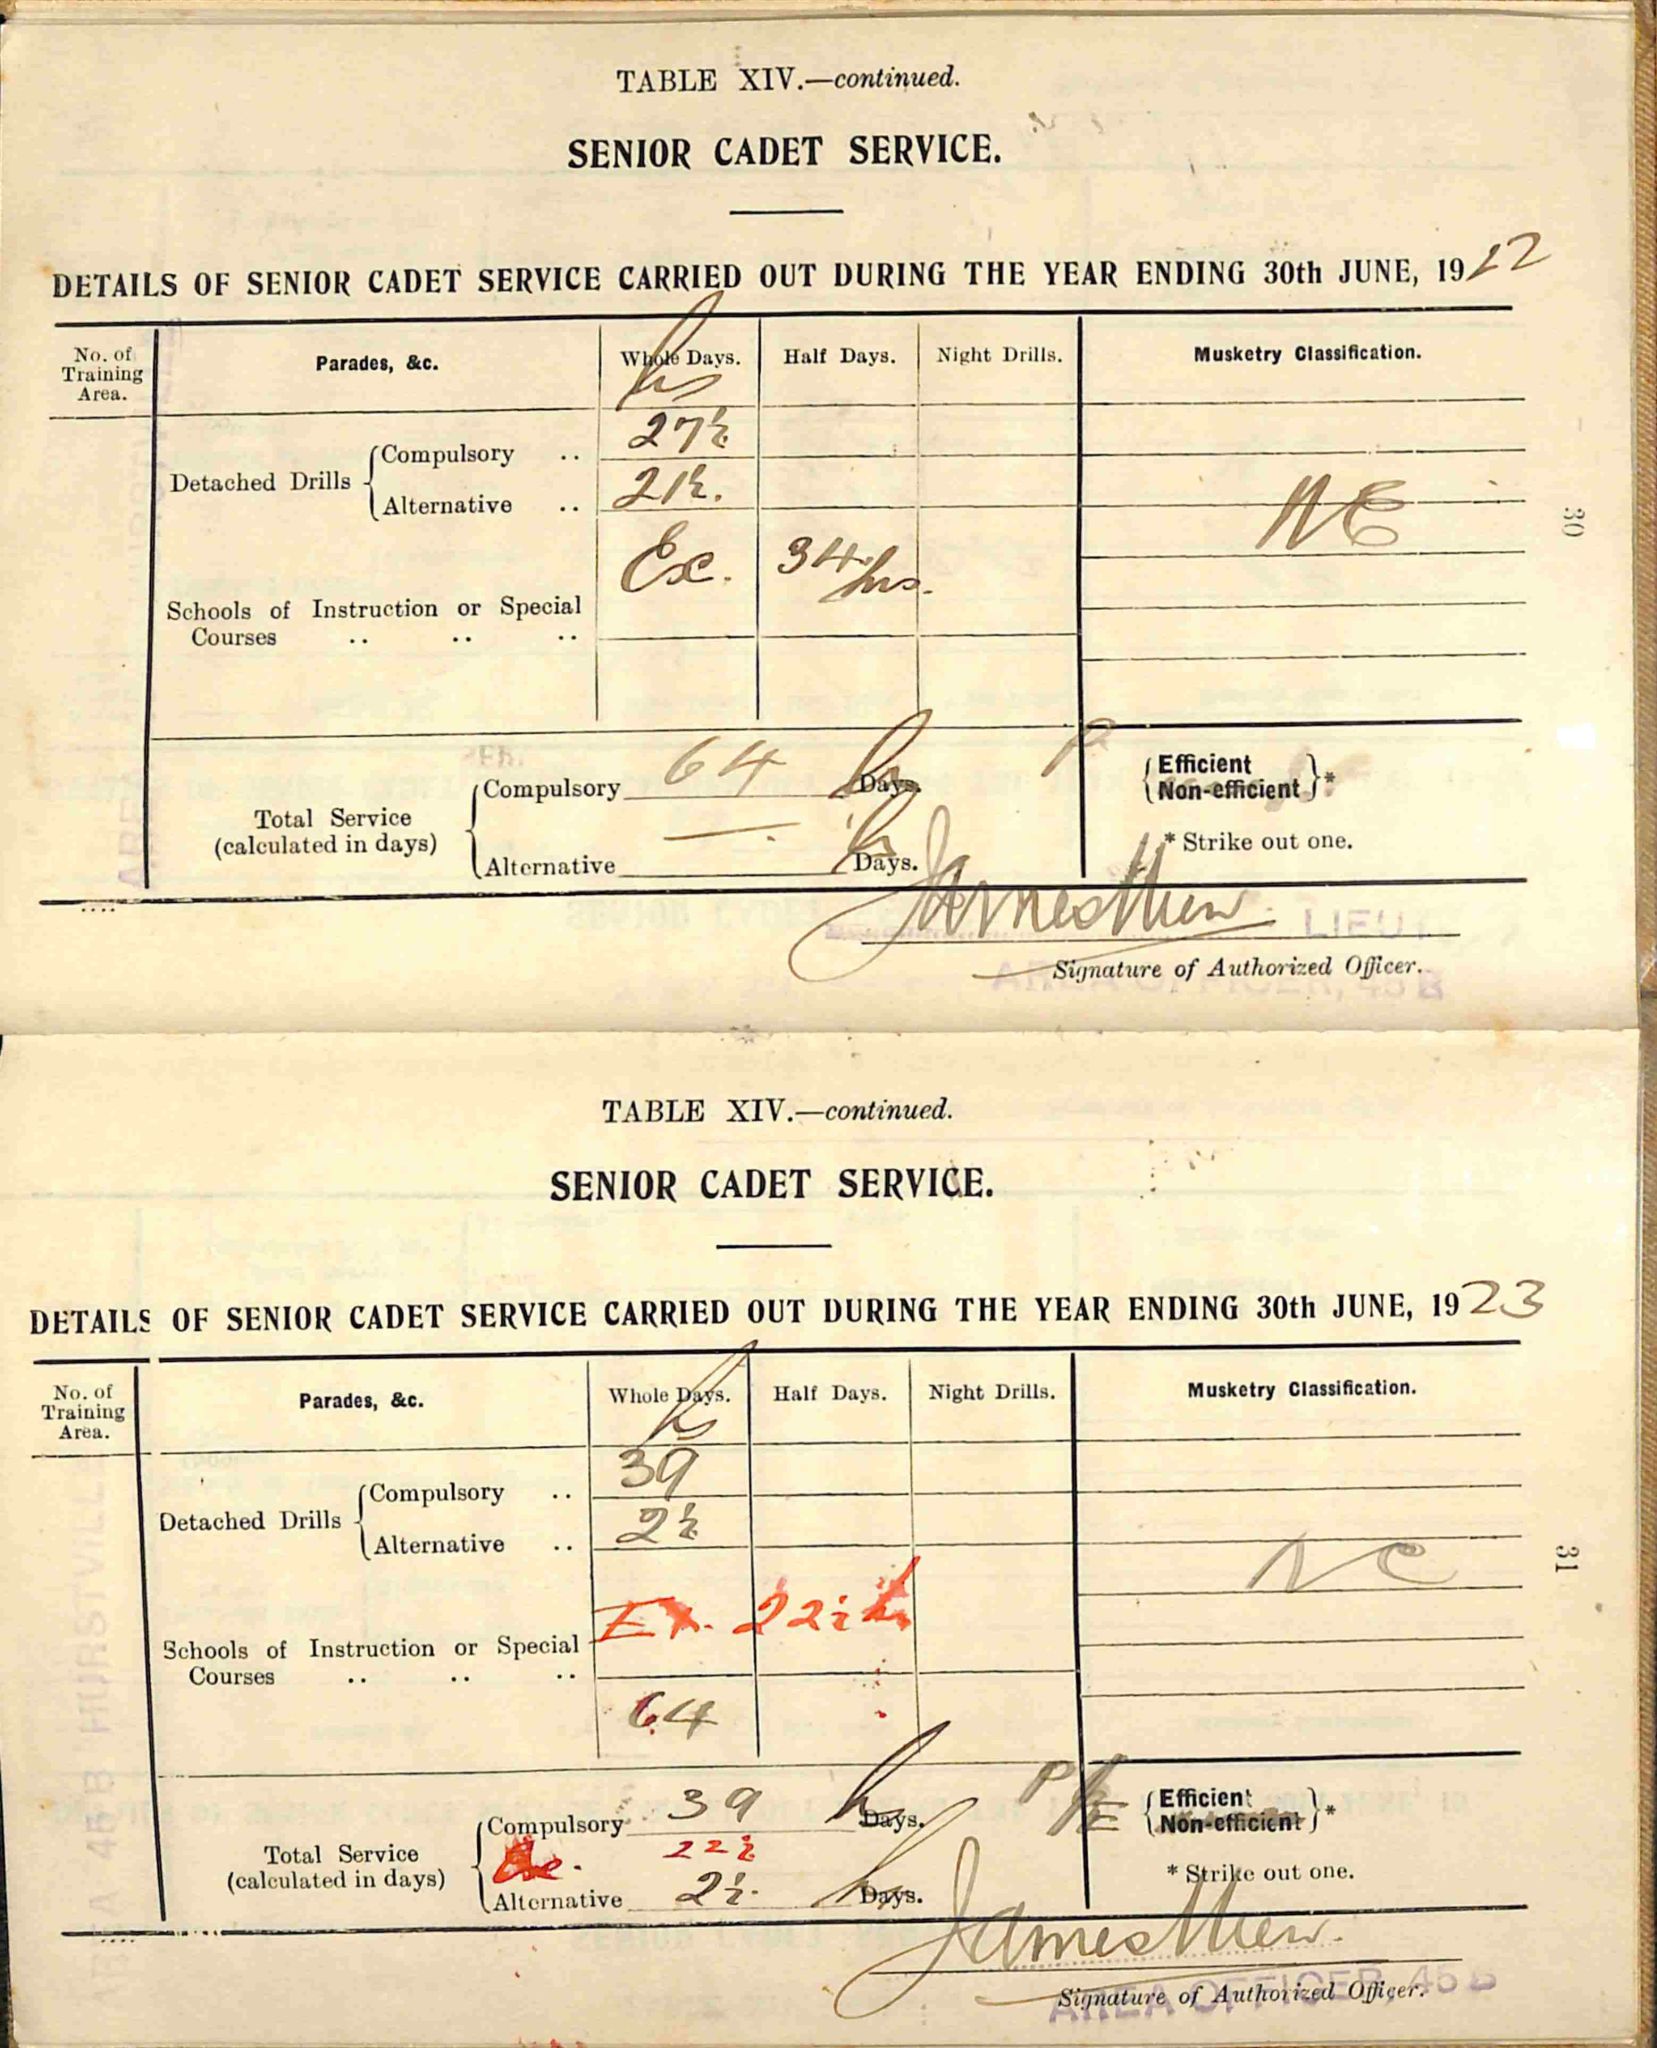 TABLE XIV.—continued.
SENIOR CADET SERVICE.
DETAILS OF SENIOR CADET SERVICE CARRIED OUT DURING THE YEAR ENDING 30th JUNE, 1922
No. of Training Area.
Parades, &c.
Whole Days.
Half Days.
Night Drills.
Musketry Classification.
hs
Detached Drills
Compulsory .. 27½
Alternative .. 2½.
Ex. 34 hrs.
30
Schools of Instruction or Special
Courses .. .. ..
Total Service
(calculated in days)
Compulsory 64 h Days.
Alternative —. h Days.
P
Efficient
Non-efficient *
* Strike out one.
James Mew. LIEUT
Signature of Authorized Officer.
AREA OFFICER, 45 B
TABLE XIV.—continued.
SENIOR CADET SERVICE.
DETAILS OF SENIOR CADET SERVICE CARRIED OUT DURING THE YEAR ENDING 30th JUNE, 1923
No. of Training Area.
Parades, &c.
Whole Days.
Half Days.
Night Drills.
Musketry Classification.
hs
Detached Drills
Compulsory .. 39
Alternative .. 2½
31
Ex. 22½ h
Schools of Instruction or Special
Courses .. .. ..
64
Total Service
(calculated in days)
Compulsory 39 h Days.
Ex. 22½
Alternative 2½. h Days.
P
Efficient
Non-efficient *
* Strike out one.
James Mew.
Signature of Authorized Officer.
AREA OFFICER, 45 B
AREA 45 B HURSTVILLE